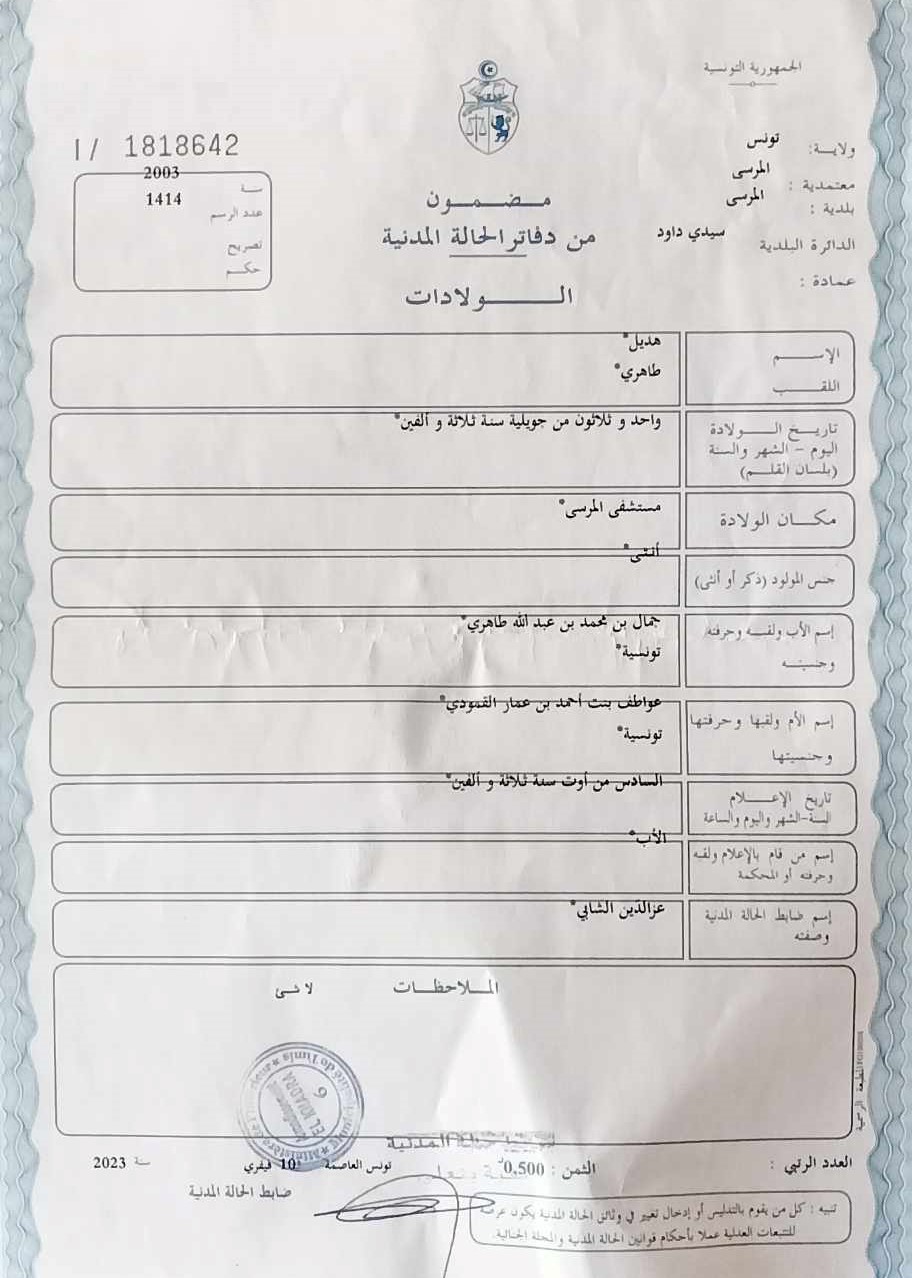 الجمهورية التونسية
ولاية: تونس
معتمدية : المرسى
بلدية : المرسى
الدائرة البلدية سيدي داود
عمادة :
I/ 1818642
سنة 2003
عدد الرسم 1414
تصريح
حكم
مضمون
من دفاتر الحالة المدنية
الولادات
الإسم هديل*
اللقب طاهري*
تاريخ الولادة
اليوم - الشهر والسنة
(بلسان القلم)
واحد و ثلاثون من جويلية سنة ثلاثة و ألفين*
مكان الولادة مستشفى المرسى*
جنس المولود (ذكر أو أنثى) أنثى*
إسم الأب ولقبه وحرفته
وجنسيته
جمال بن محمد بن عبد الله طاهري*
تونسية*
إسم الأم ولقبها وحرفتها
وجنسيتها
عواطف بنت أحمد بن عمار القمودي*
تونسية*
تاريخ الإعلام
السنة-الشهر واليوم والساعة
السادس من أوت سنة ثلاثة و ألفين*
إسم من قام بالإعلام ولقبه
وحرفته أو المحكمة
الأب*
إسم ضابط الحالة المدنية
وصفته
عزالدين الشابي*
الملاحظات لا شئ
المطبعة الرسمية
EL KHADRA
6
العدد الرتبي :
الثمن : 0,500د
تونس العاصمة 10 فيفري سنة 2023
ضابط الحالة المدنية
تنبيه : كل من يقوم بالتدليس أو إدخال تغيير في وثائق الحالة المدنية يكون عرضة
للتتبعات العدلية عملا بأحكام قوانين الحالة المدنية والمجلة الجنائية.